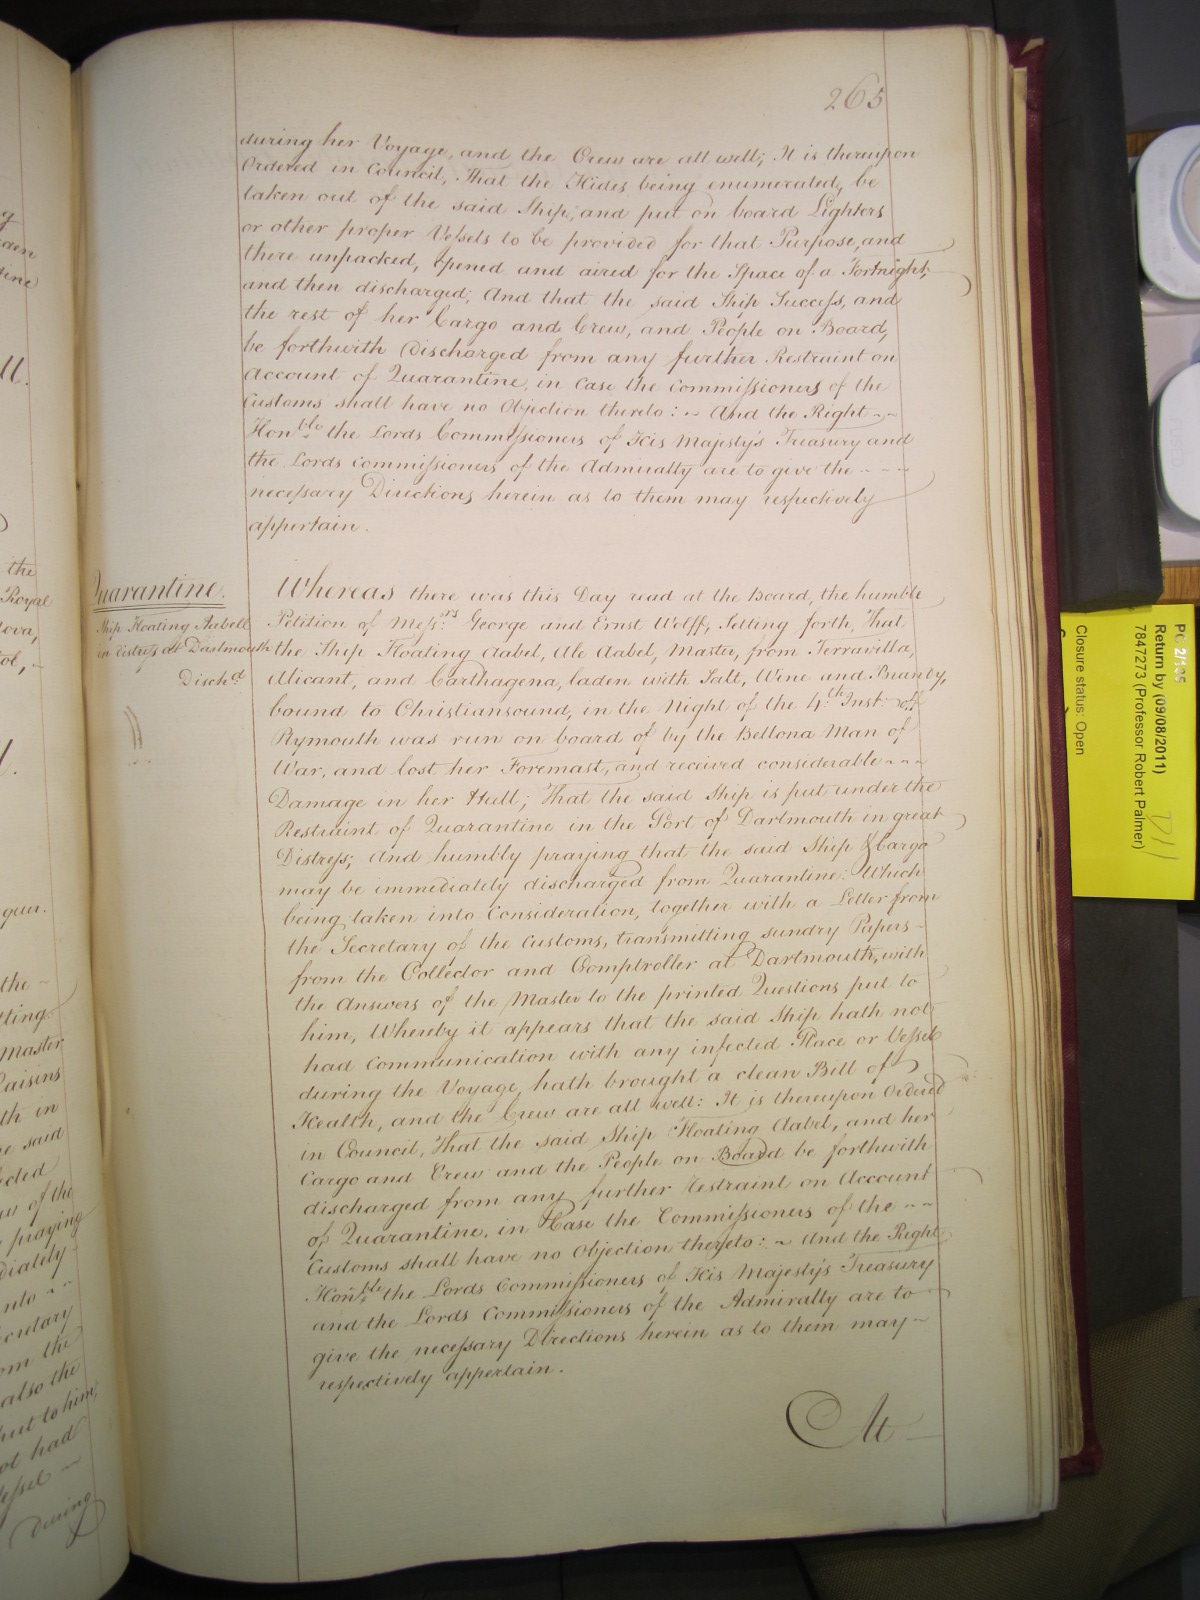 265
during her Voyage, and the Crew are all well; It is thereupon
Ordered in Council, That the Hides being enumerated, be
taken out of the said Ship, and put on board Lighters
or other proper Vessels to be provided for that Purpose, and
there unpacked, opened and aired for the Space of a Fortnight,
and then discharged; And that the said Ship Success, and
the rest of her Cargo and Crew, and People on Board,
be forthwith discharged from any further Restraint on
Account of Quarantine, in Case the Commissioners of the
Customs shall have no Objection thereto: ~ And the Right ~~
Honble the Lords Commissioners of His Majesty's Treasury and
the Lords Commissioners of the Admiralty are to give the ----
necessary Directions herein as to them may respectively
appertain.
Quarantine.
Ship Floating Aabell
in distress at Dartmouth
Dischd
Whereas there was this Day read at the Board, the humble
Petition of Messrs George and Ernst Wolff, Setting forth, That
the Ship Floating Aabel, Ale Aabel, Master, from Terravilla,
Alicant, and Carthagena, laden with Salt, Wine and Brandy,
bound to Christiansound, in the Night of the 4th Inst. off
Plymouth was run on board of by the Bellona Man of
War, and lost her Foremast, and received considerable ~~~
Damage in her Hull; That the said Ship is put under the
Restraint of Quarantine in the Port of Dartmouth in great
Distress; And humbly praying that the said Ship & Cargo
may be immediately discharged from Quarantine: Which
being taken into Consideration, together with a Letter from
the Secretary of the Customs, transmitting sundry Papers ~
from the Collector and Comptroller at Dartmouth, with
the Answers of the Master to the printed Questions put to
him, Whereby it appears that the said Ship hath not
had Communication with any infected Place or Vessel
during the Voyage, hath brought a clean Bill of
Health, and the Crew are all well: It is thereupon Ordered
in Council, That the said Ship Floating Aabel, and her
Cargo and Crew and the People on Board be forthwith
discharged from any further Restraint on Account
of Quarantine, in Case the Commissioners of the ~~
Customs shall have no Objection thereto: ~ And the Right
Honble the Lords Commissioners of His Majesty's Treasury
and the Lords Commissioners of the Admiralty are to
give the necessary Directions herein as to them may ~
respectively appertain.
At
the
Royal
the ~
Master
Raisins
th in
said
of the
praying
the
also the
put to him,
had
during
PC 2/135
Return by (09/08/2011)
7847273 (Professor Robert Palmer)
Closure status: Open